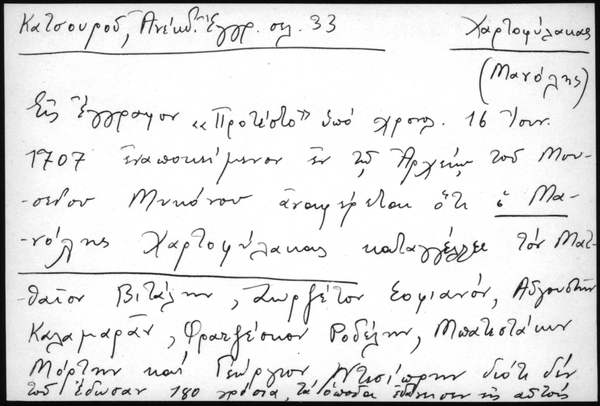 Κατσουροῦ, Ἀνέκδ. Ἔγγρ. σελ. 33
Χαρτοφύλακας
(Μανόλης)
Εἰς ἔγγραφον «Προτέστο» ὑπό χρον. 16 Ἰουν.
1707 ἐναποκείμενον ἐν τῷ Ἀρχείῳ τοῦ Μου-
σείου Μυκόνου ἀναφέρεται ὅτι ὁ Μα-
-νόλης Χαρτοφύλακας καταγγέλλει τόν Ματ-
-θαῖον Βιτάλην, Τζωρζέτον Σοφιανόν, Αὐγουστῆν
Καλαμαρᾶν, Φραντζέσκον Ροδέλην, Μπατιστάκην
Μόρτην καί Γεώργιον διότι δέν
τοῦ ἔδωσαν 180 γρόσια, τά ὁποῖα εἰς αὐτούς